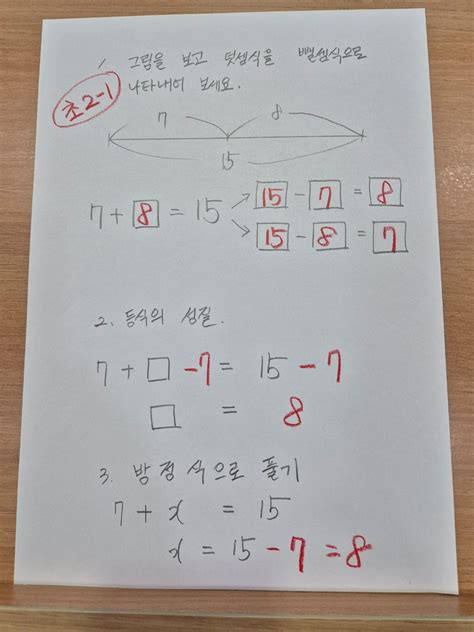 1. 그림을 보고 덧셈식을 뺄셈식으로
나타내어 보세요.
초2-1
7 8
15
7 + 8 = 15
15 - 7 = 8
15 - 8 = 7
2. 등식의 성질.
7 + □ - 7 = 15 - 7
□ = 8
3. 방정식으로 풀기
7 + x = 15
x = 15 - 7 = 8